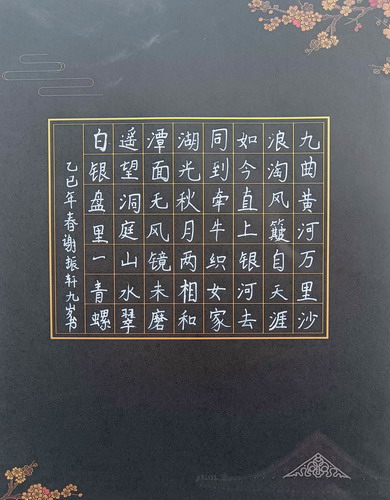 九曲黄河万里沙
浪淘风簸自天涯
如今直上银河去
同到牵牛织女家
湖光秋月两相和
潭面无风镜未磨
遥望洞庭山水翠
白银盘里一青螺
乙巳年春谢振轩九岁书